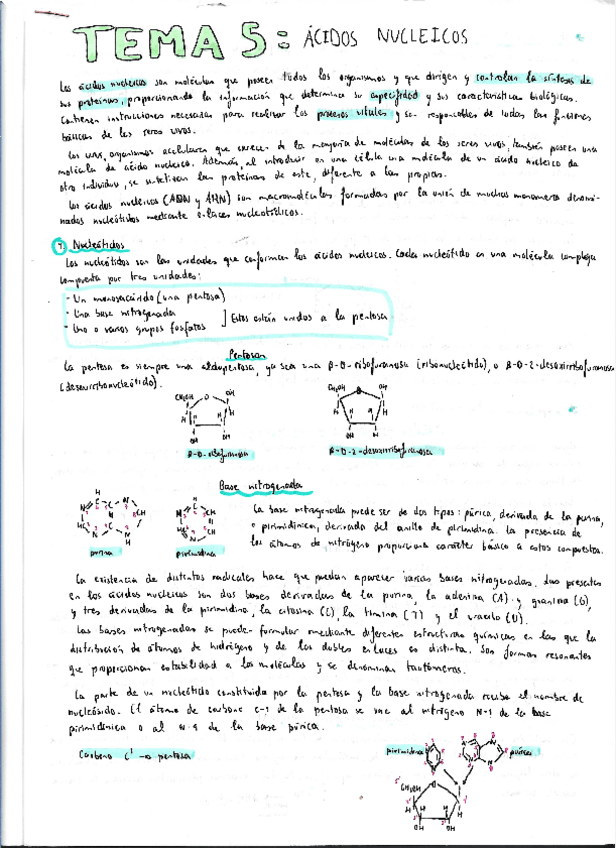 TEMA 5: ÁCIDOS NUCLEICOS
Los ácidos nucleicos son moléculas que poseen todos los organismos y que dirigen y controlan la síntesis de
sus proteínas, proporcionando la información que determina su especifidad y sus características biológicas.
Contienen instrucciones necesarias para realizar los procesos vitales y son responsables de todas las funciones
básicas de los seres vivos.
Los virus, organismos acelulares que carecen de la mayoría de moléculas de los seres vivos, también poseen una
molécula de ácido nucleico. Además, al introducir en una célula una molécula de un ácido nucleico de
otro individuo, se sintetizan las proteínas de este, diferente a las propias.
Los ácidos nucleicos (ADN y ARN) son macromoléculas formadas por la unión de muchos monómeros denomi-
nados nucleótidos mediante enlaces nucleotídicos.
1. Nucleótidos
Los nucleótidos son las unidades que conforman los ácidos nucleicos. Cada nucleótido es una molécula compleja
compuesta por tres unidades:
- Un monosacárido (una pentosa)
- Una base nitrogenada
- Uno o varios grupos fosfatos ] Estos están unidos a la pentosa
Pentosas
La pentosa es siempre una aldopentosa, ya sea una β-D-ribofuranosa (ribonucleótido), o β-D-2-desoxirribofuranosa
(desoxirribonucleótido).
CH₂OH O OH H H H H OH OH
CH₂OH O OH H H H H OH H
β-D-ribofuranosa
β-D-2-desoxirribofuranosa
Base nitrogenada
La base nitrogenada puede ser de dos tipos: púrica, derivada de la purina,
o pirimidínica, derivada del anillo de pirimidina. La presencia de
los átomos de nitrógeno proporciona carácter básico a estos compuestos.
purina
pirimidina
La existencia de distintos radicales hace que puedan aparecer varias bases nitrogenadas. Las presentes
en los ácidos nucleicos son dos bases derivadas de la purina, la adenina (A) y guanina (G),
y tres derivadas de la pirimidina, la citosina (C), la timina (T) y el uracilo (U).
Las bases nitrogenadas se pueden formular mediante diferentes estructuras químicas en las que la
distribución de átomos de hidrógeno y de los dobles enlaces es distinta. Son formas resonantes
que proporcionan estabilidad a las moléculas y se denominan tautómeros.
La parte de un nucleótido constituida por la pentosa y la base nitrogenada recibe el nombre de
nucleósido. El átomo de carbono C-1 de la pentosa se une al nitrógeno N-1 de la base
pirimidínica o al N-9 de la base púrica.
Carbono C' → pentosa
pirimidina
púrica
CH₂OH O H H H H OH OH